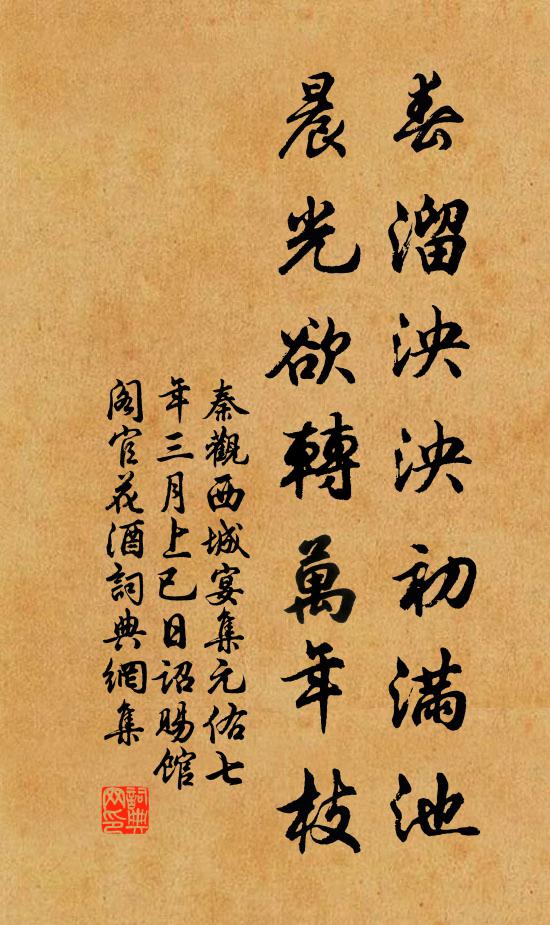 春溜泱泱初滿池
晨光欲轉萬年枝
秦觀西城宴集元佑七
年三月上巳日詔賜館
閣官花酒詞典網集
詞典網印